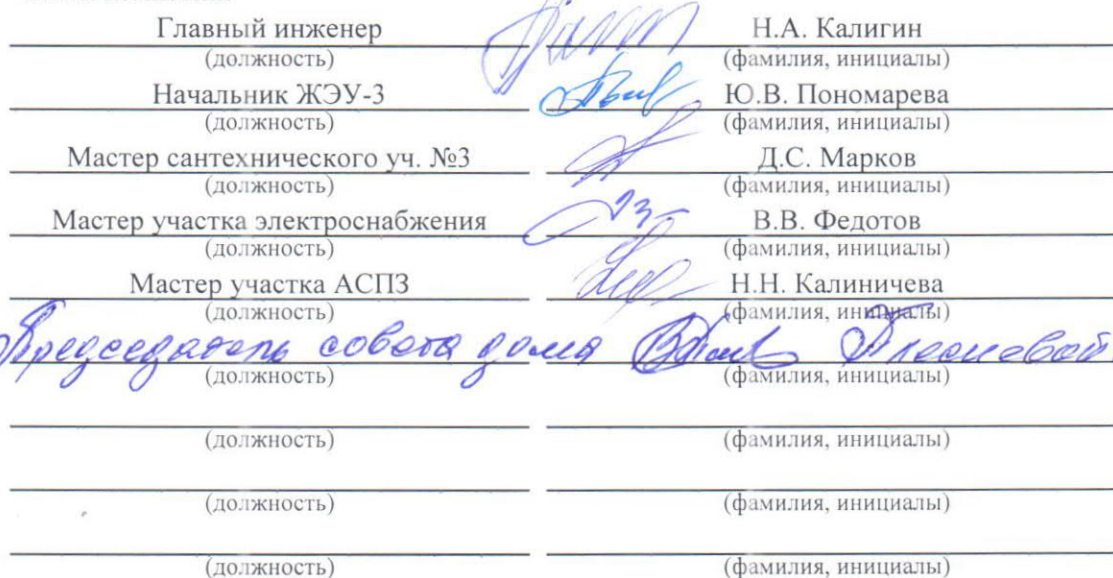 Главный инженер Н.А. Калигин
(должность) (фамилия, инициалы)
Начальник ЖЭУ-3 Ю.В. Пономарева
(должность) (фамилия, инициалы)
Мастер сантехнического уч. №3 Д.С. Марков
(должность) (фамилия, инициалы)
Мастер участка электроснабжения В.В. Федотов
(должность) (фамилия, инициалы)
Мастер участка АСПЗ Н.Н. Калиничева
(должность) (фамилия, инициалы)
Председатель совета дома
(должность) (фамилия, инициалы)
(должность) (фамилия, инициалы)
(должность) (фамилия, инициалы)
(должность) (фамилия, инициалы)